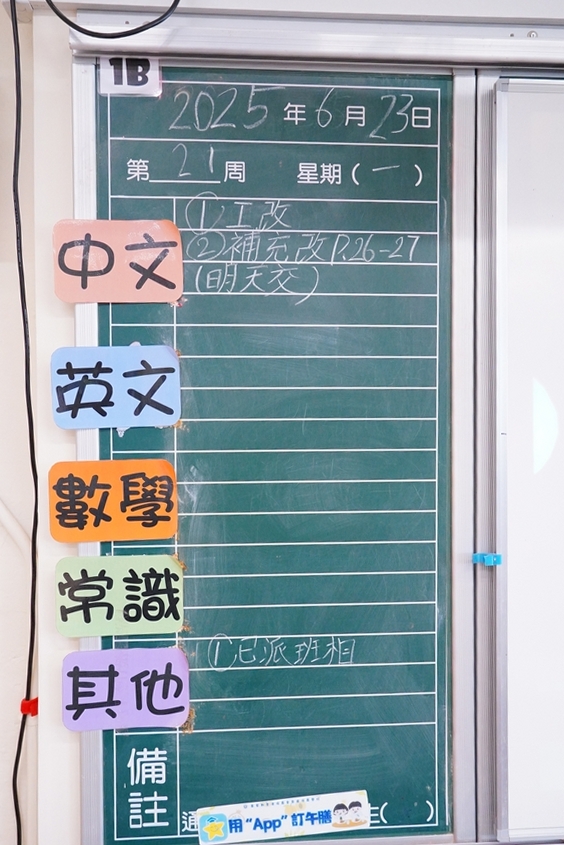 1B
2025年6月23日
第21周 星期(一)
①工改
中文 ②補充改P.26-27
(明天交)
英文
數學
常識
①已派班相
其他
備註
通
用“App”訂午膳
生( )